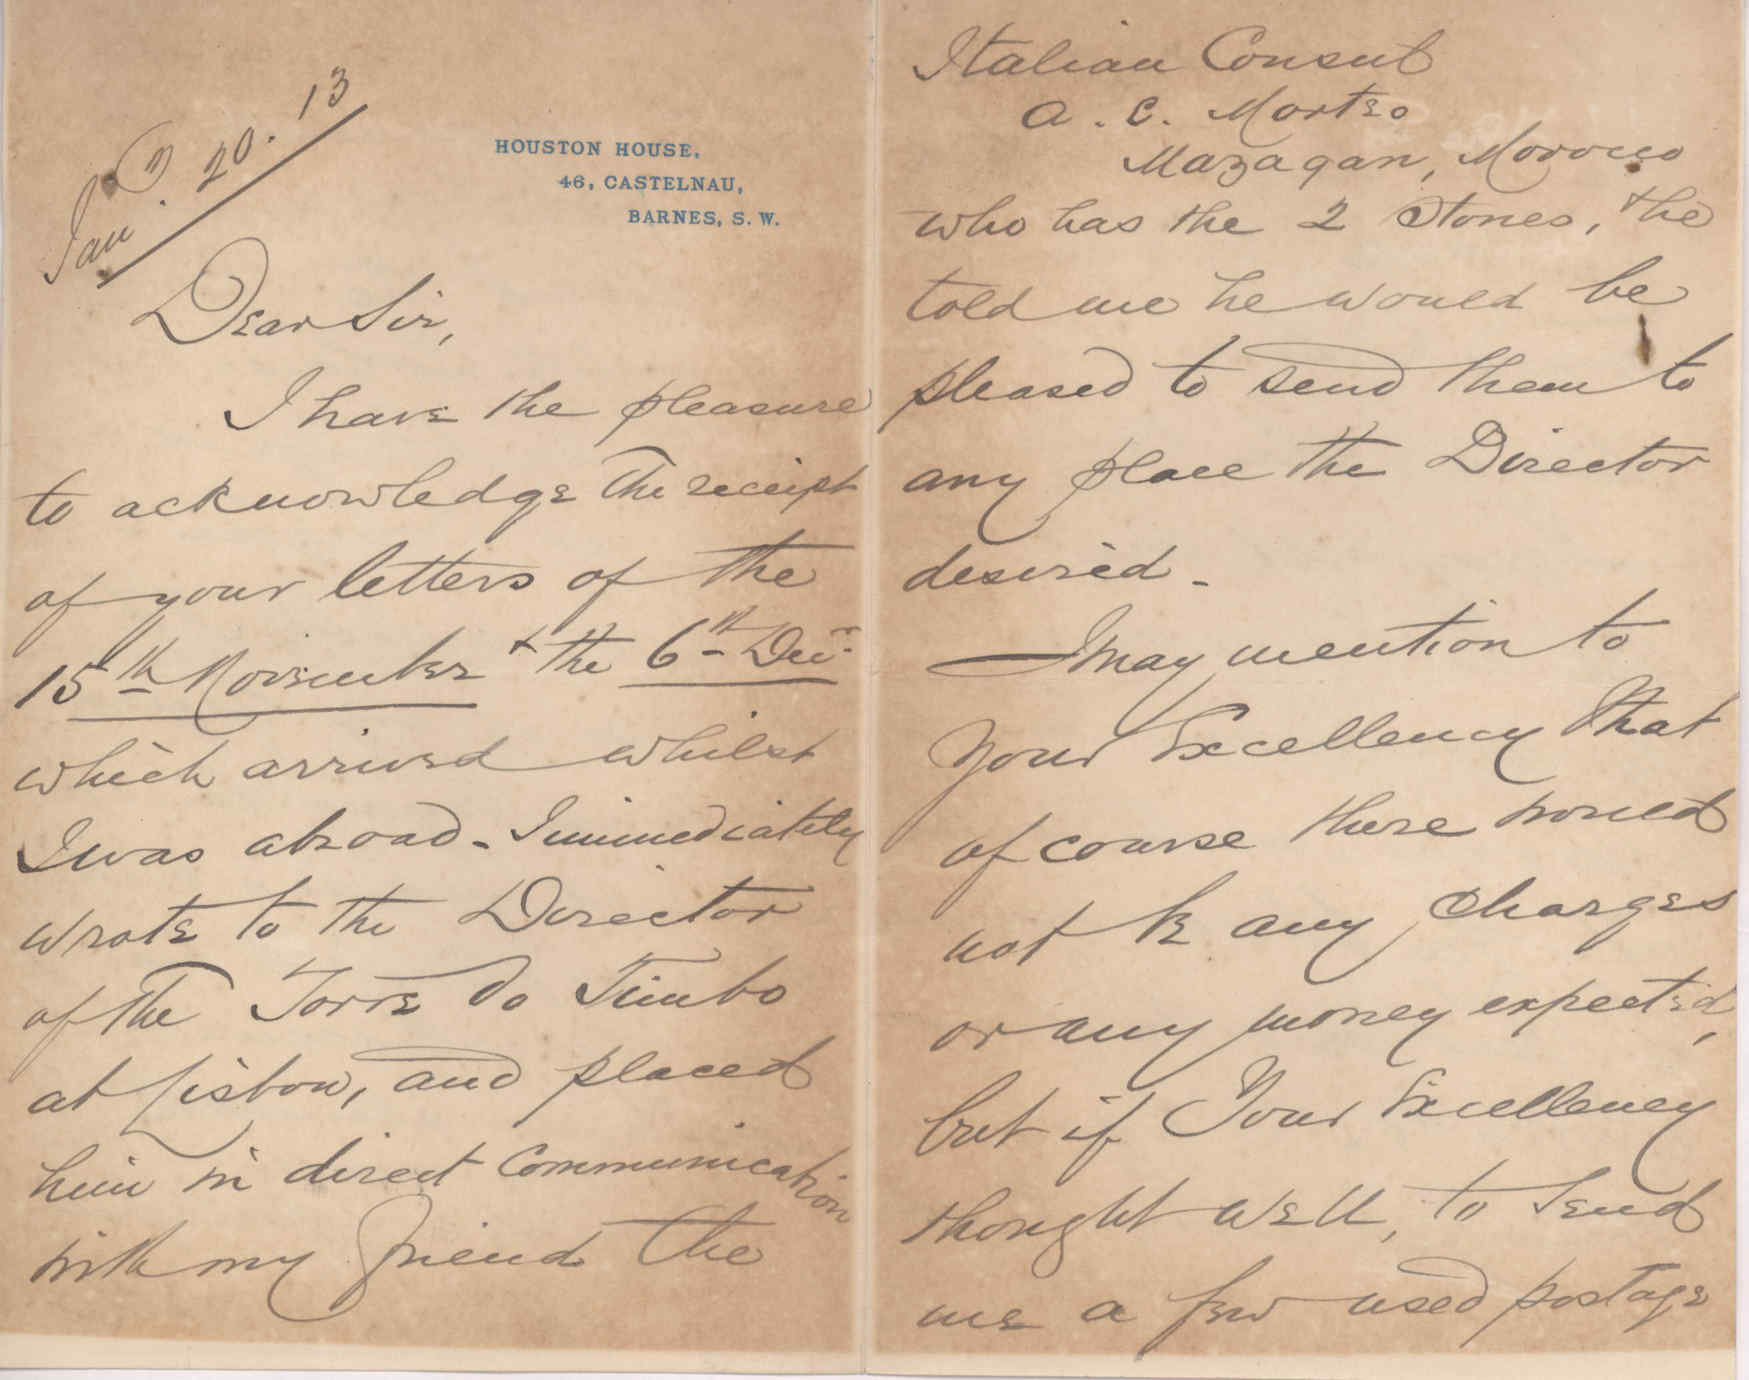 Jan. 20. 13
HOUSTON HOUSE,
46, CASTELNAU,
BARNES, S. W.
Dear Sir,
I have the pleasure
to acknowledge the receipt
of your letters of the
15th November & the 6th Decr
which arrived whilst
I was abroad - Immediately
wrote to the Director
of the Torre do Timbo
at Lisbon, and placed
him in direct communication
with my friend the
Italian Consul
A. C. Morteo
Mazagan, Morocco
who has the 2 Stones, & he
told me he would be
pleased to send them to
any place the Director
desired -
I may mention to
Your Excellency that
of course there would
not be any charges
or any money expected,
but if Your Excellency
thought well, to send
me a few used postage